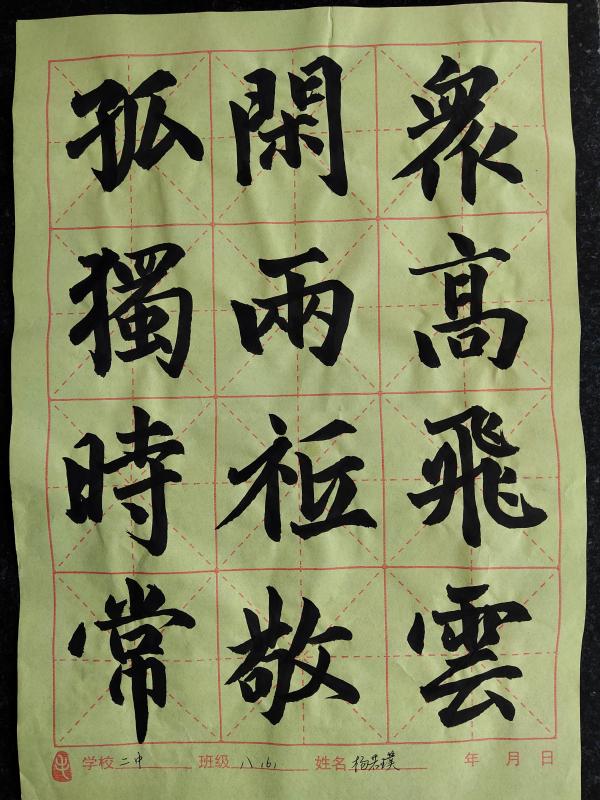 衆高飛雲
閑兩祗敬
孤獨時常
学校 二中 班级 八(6) 姓名 杨若璞 年 月 日